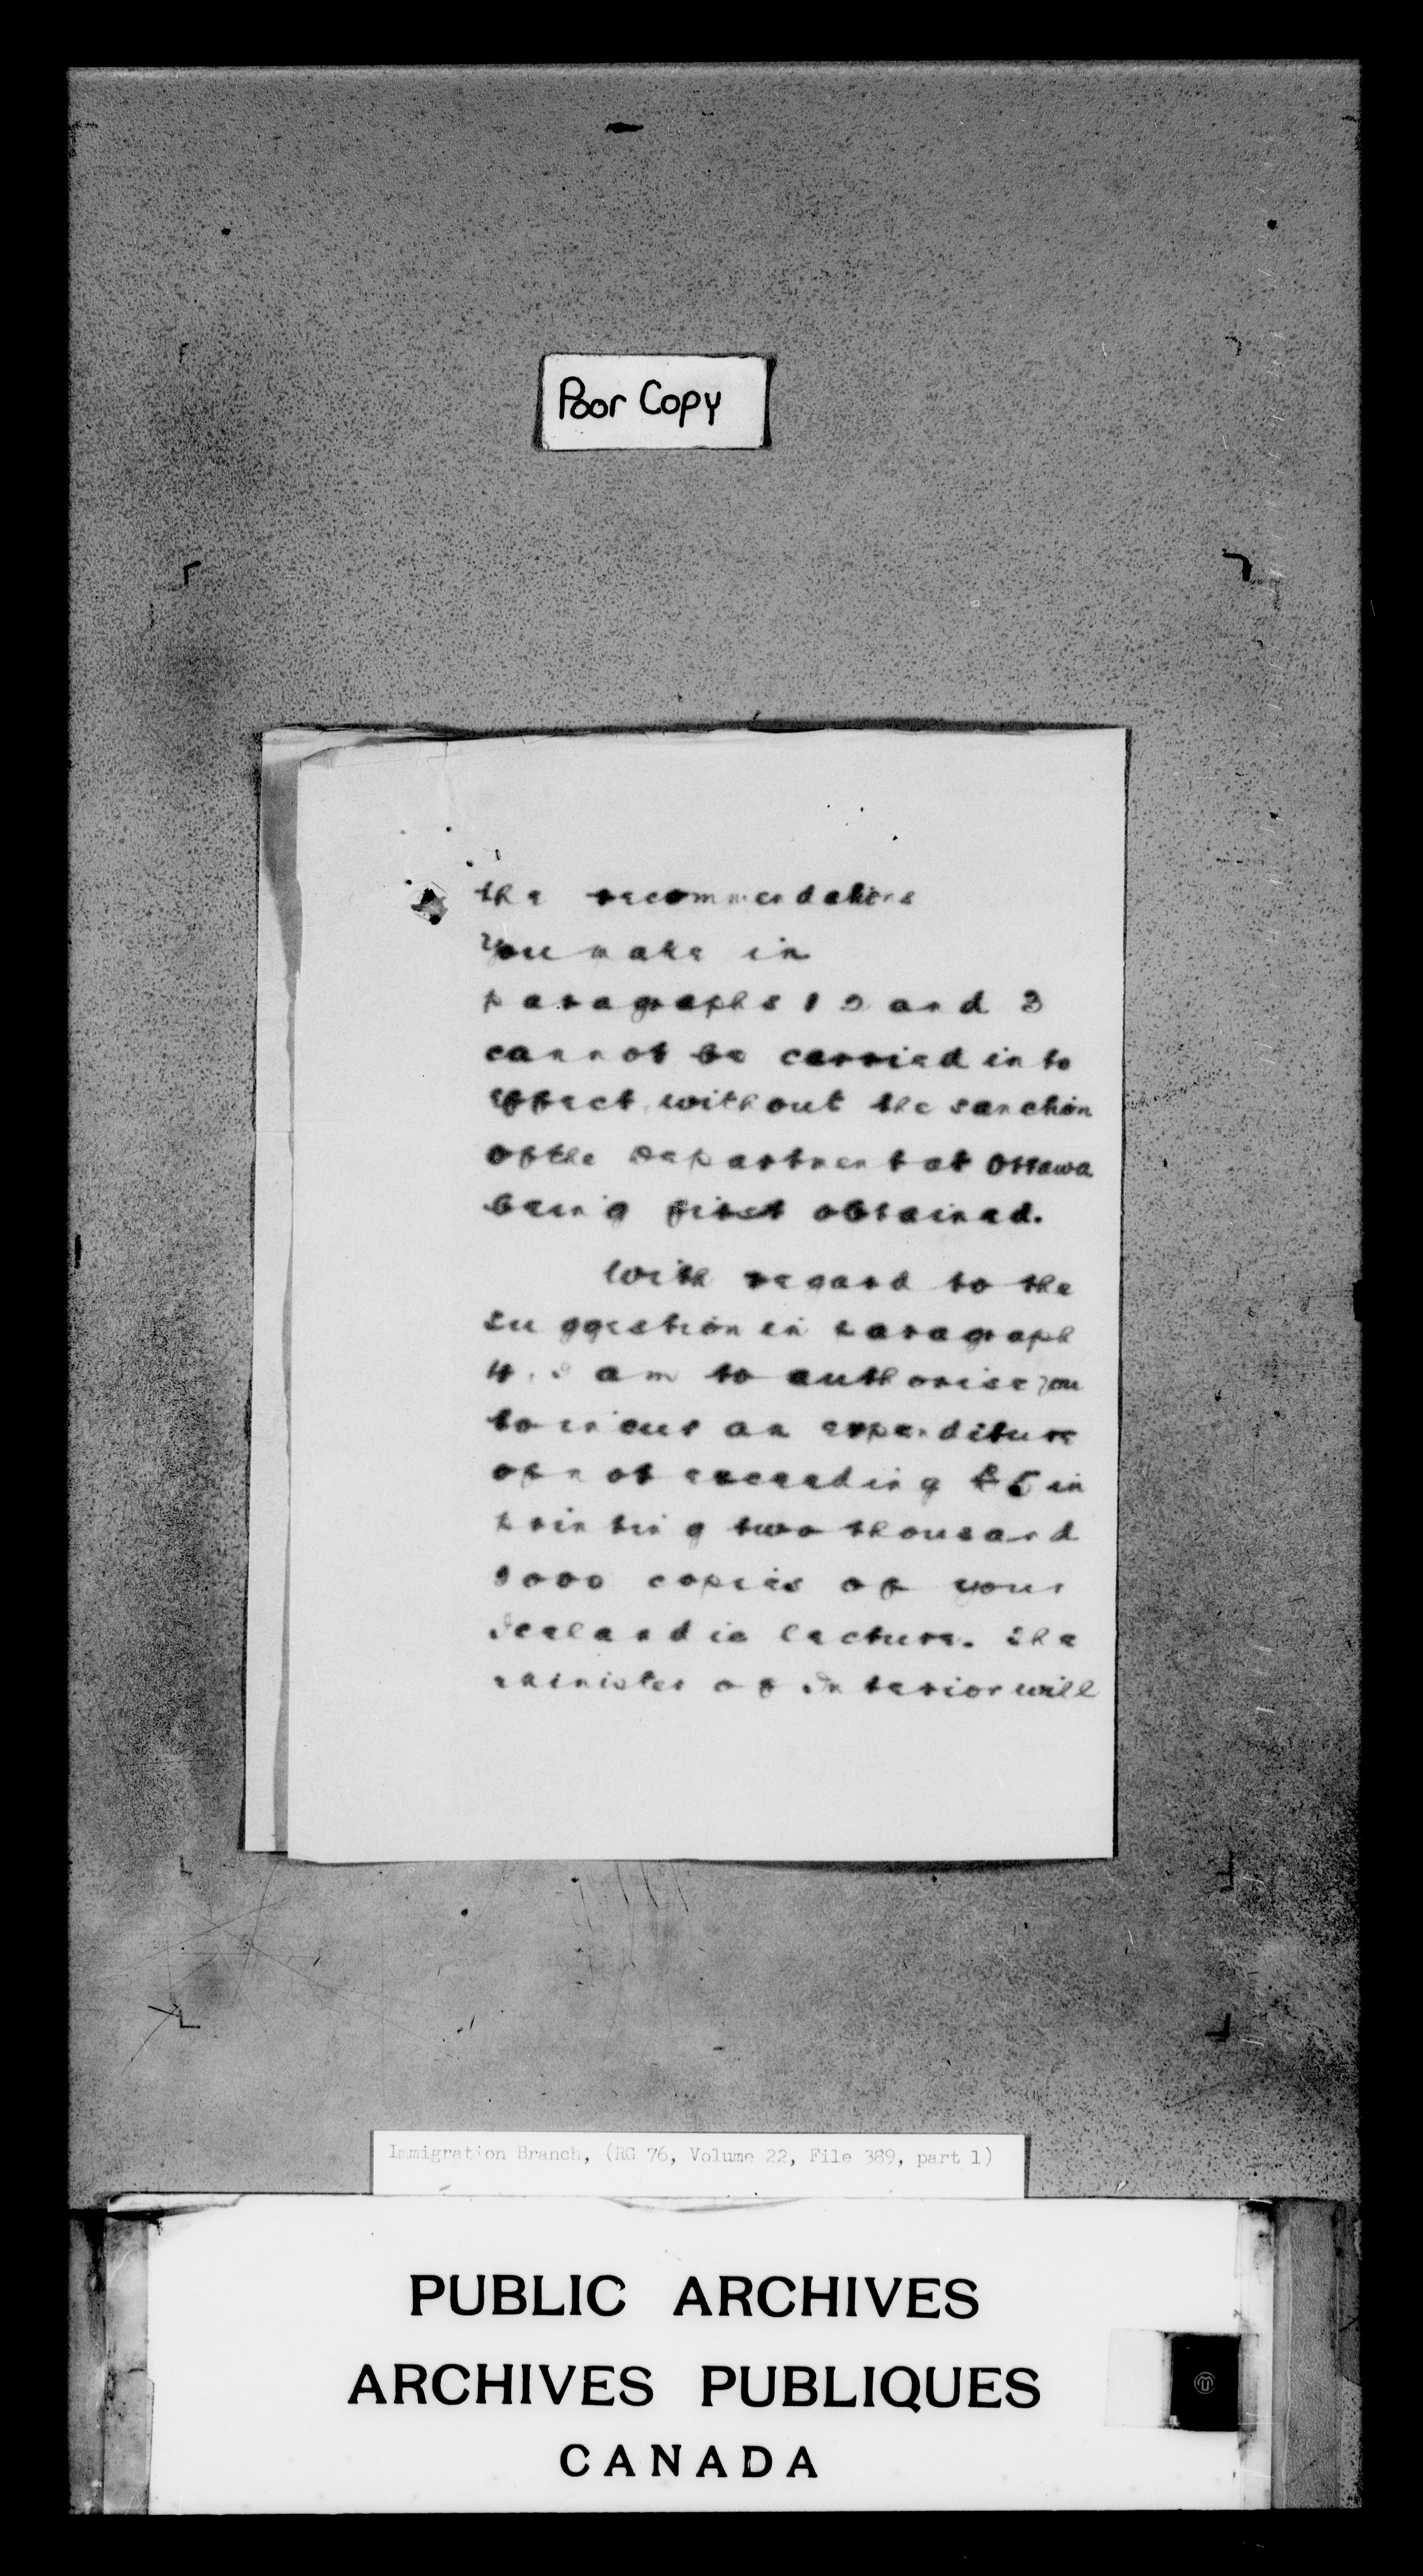 Poor Copy
the recommendations
you make in
paragraphs 1 2 and 3
cannot be carried into
effect without the sanction
of the Department at Ottawa
being first obtained.
With regard to the
suggestion in paragraph
4. I am to authorise you
to incur an expenditure
of not exceeding £5 in
printing two thousand
2000 copies of your
Icelandic lecture. The
Minister of Interior will
Immigration Branch, (RG 76, Volume 22, File 389, part 1)
PUBLIC ARCHIVES
ARCHIVES PUBLIQUES
CANADA